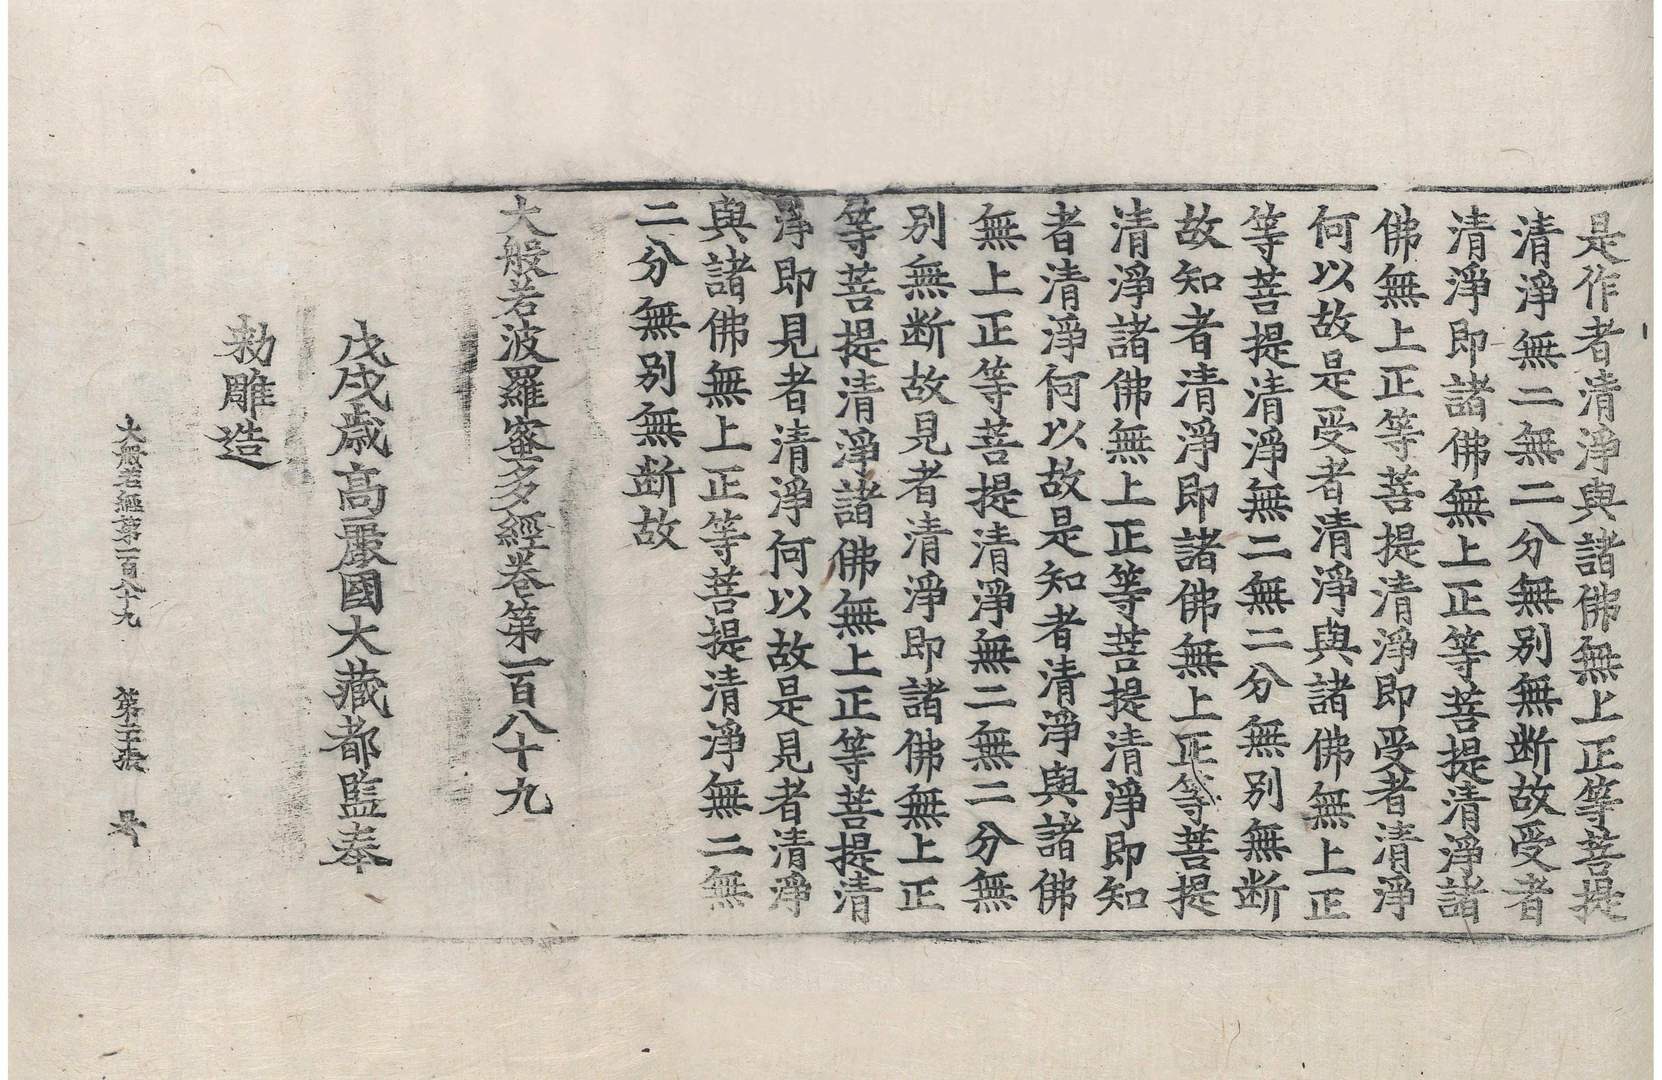 是作者清淨與諸佛無上正等菩提
清淨無二無二分無別無断故受者
清淨即諸佛無上正等菩提清淨諸
佛無上正等菩提清淨即受者清淨
何以故是受者清淨與諸佛無上正
等菩提清淨無二無二分無別無断
故知者清淨即諸佛無上正等菩提
清淨諸佛無上正等菩提清淨即知
者清淨何以故是知者清淨與諸佛
無上正等菩提清淨無二無二分無
別無断故見者清淨即諸佛無上正
等菩提清淨諸佛無上正等菩提清
淨即見者清淨何以故是見者清淨
與諸佛無上正等菩提清淨無二無
二分無別無断故
大般若波羅蜜多經卷第一百八十九
戊戌歲高麗國大藏都監奉
勑雕造
大般若經第一百八十九 第 張 号